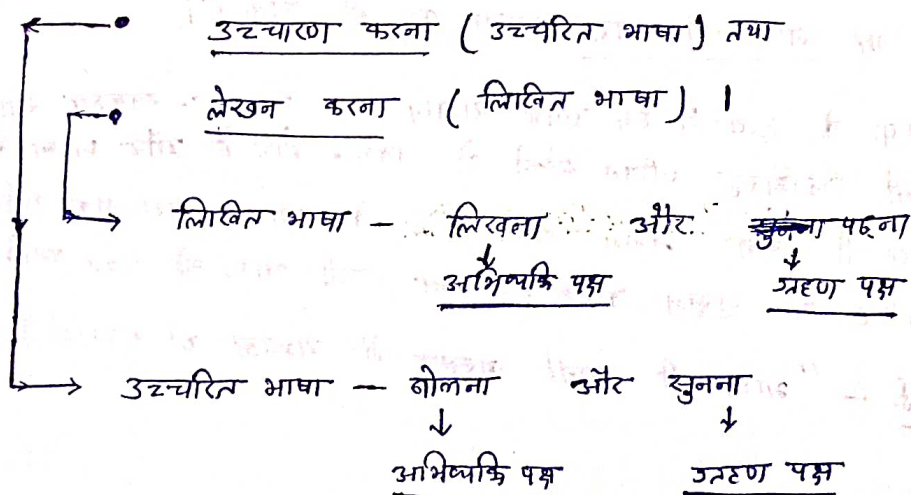 उच्चारण करना (उच्चरित भाषा) तथा
लेखन करना (लिखित भाषा) ।
लिखित भाषा – लिखना और सुनना पढ़ना
अभिव्यक्ति पक्ष ग्रहण पक्ष
उच्चरित भाषा – बोलना और सुनना
अभिव्यक्ति पक्ष ग्रहण पक्ष